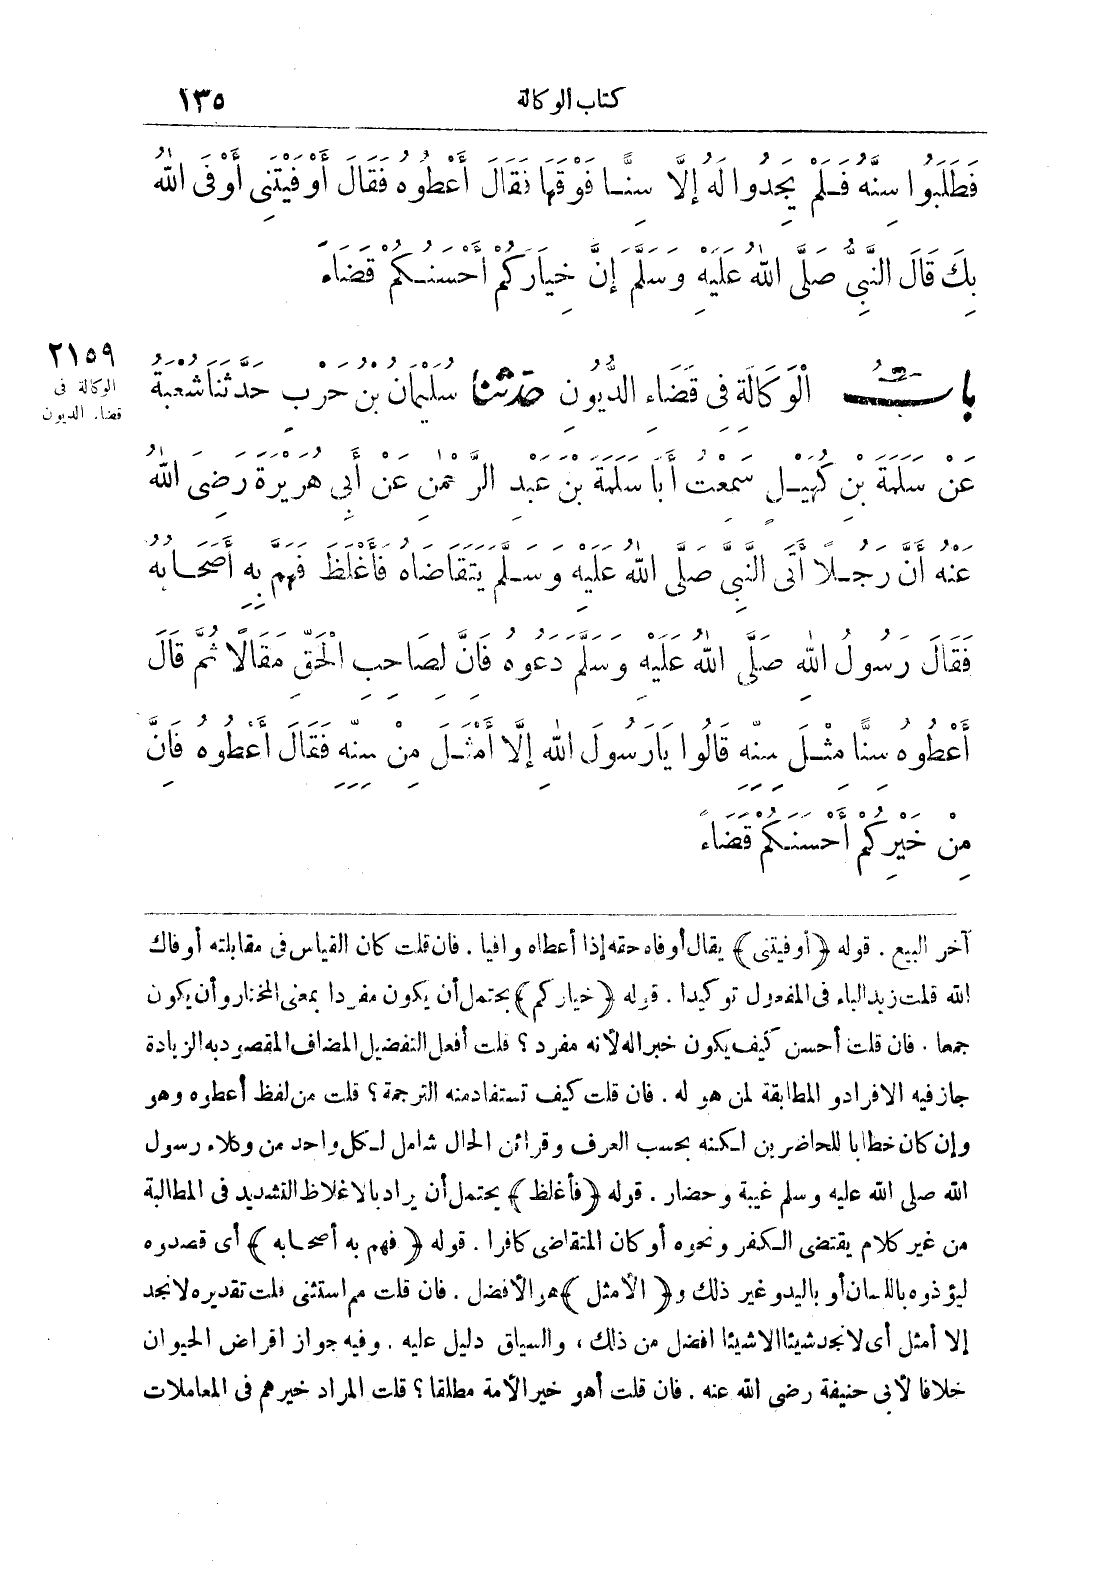 كتاب الوكالة ١٣٥
فَطَلَبُوا سِنَّهُ فَلَمْ يَجِدُوا لَهُ إِلَّا سِنًّا فَوْقَهَا فَقَالَ أَعْطُوهُ فَقَالَ أَوْفَيْتَنِي أَوْفَى اللهُ
بِكَ قَالَ النَّبِيُّ صَلَّى اللهُ عَلَيْهِ وَسَلَّمَ إِنَّ خِيَارَكُمْ أَحْسَنُكُمْ قَضَاءً
٢١٥٩
الوكالة فى
قضاء الديون
بَابُ الْوَكَالَةِ فِي قَضَاءِ الدُّيُونِ حَدَّثَنَا سُلَيْمَانُ بْنُ حَرْبٍ حَدَّثَنَا شُعْبَةُ
عَنْ سَلَمَةَ بْنِ كُهَيْلٍ سَمِعْتُ أَبَا سَلَمَةَ بْنَ عَبْدِ الرَّحْمٰنِ عَنْ أَبِي هُرَيْرَةَ رَضِيَ اللهُ
عَنْهُ أَنَّ رَجُلًا أَتَى النَّبِيَّ صَلَّى اللهُ عَلَيْهِ وَسَلَّمَ يَتَقَاضَاهُ فَأَغْلَظَ فَهَمَّ بِهِ أَصْحَابُهُ
فَقَالَ رَسُولُ اللهِ صَلَّى اللهُ عَلَيْهِ وَسَلَّمَ دَعُوهُ فَإِنَّ لِصَاحِبِ الْحَقِّ مَقَالًا ثُمَّ قَالَ
أَعْطُوهُ سِنًّا مِثْلَ سِنِّهِ قَالُوا يَا رَسُولَ اللهِ إِلَّا أَمْثَلَ مِنْ سِنِّهِ فَقَالَ أَعْطُوهُ فَإِنَّ
مِنْ خَيْرِكُمْ أَحْسَنَكُمْ قَضَاءً
آخر البيع . قوله ﴿أوفيتنى﴾ يقال أوفاه حقه إذا أعطاه وافيا . فان قلت كان القياس فى مقابلته أوفاك
الله قلت زيد الباء فى المفعول توكيدا . قوله ﴿خياركم﴾ يحتمل أن يكون مفردا بمعنى المختار وأن يكون
جمعا . فان قلت أحسن كيف يكون خبرا له لأنه مفرد ؟ قلت أفعل التفضيل المضاف المقصود به الزيادة
جاز فيه الافراد و المطابقة لمن هو له . فان قلت كيف تستفاد منه الترجمة ؟ قلت من لفظ أعطوه وهو
وإن كان خطابا للحاضرين لكنه بحسب العرف وقرائن الحال شامل لكل واحد من وكلاء رسول
الله صلى الله عليه وسلم غيبة وحضار . قوله ﴿فأغلظ﴾ يحتمل أن يراد بالاغلاظ التشديد فى المطالبة
من غير كلام يقتضى الكفر ونحوه أو كان المتقاضى كافرا . قوله ﴿فهم به أصحابه﴾ أى قصدوه
ليؤذوه باللسان أو باليد و غير ذلك و﴿الأمثل﴾ هو الأفضل . فان قلت مم استثنى قلت تقديره لا نجد
إلا أمثل أى لا نجد شيئا الا شيئا افضل من ذلك ، والسياق دليل عليه . وفيه جواز اقراض الحيوان
خلافا لأبى حنيفة رضى الله عنه . فان قلت أهو خير الأمة مطلقا ؟ قلت المراد خيرهم فى المعاملات